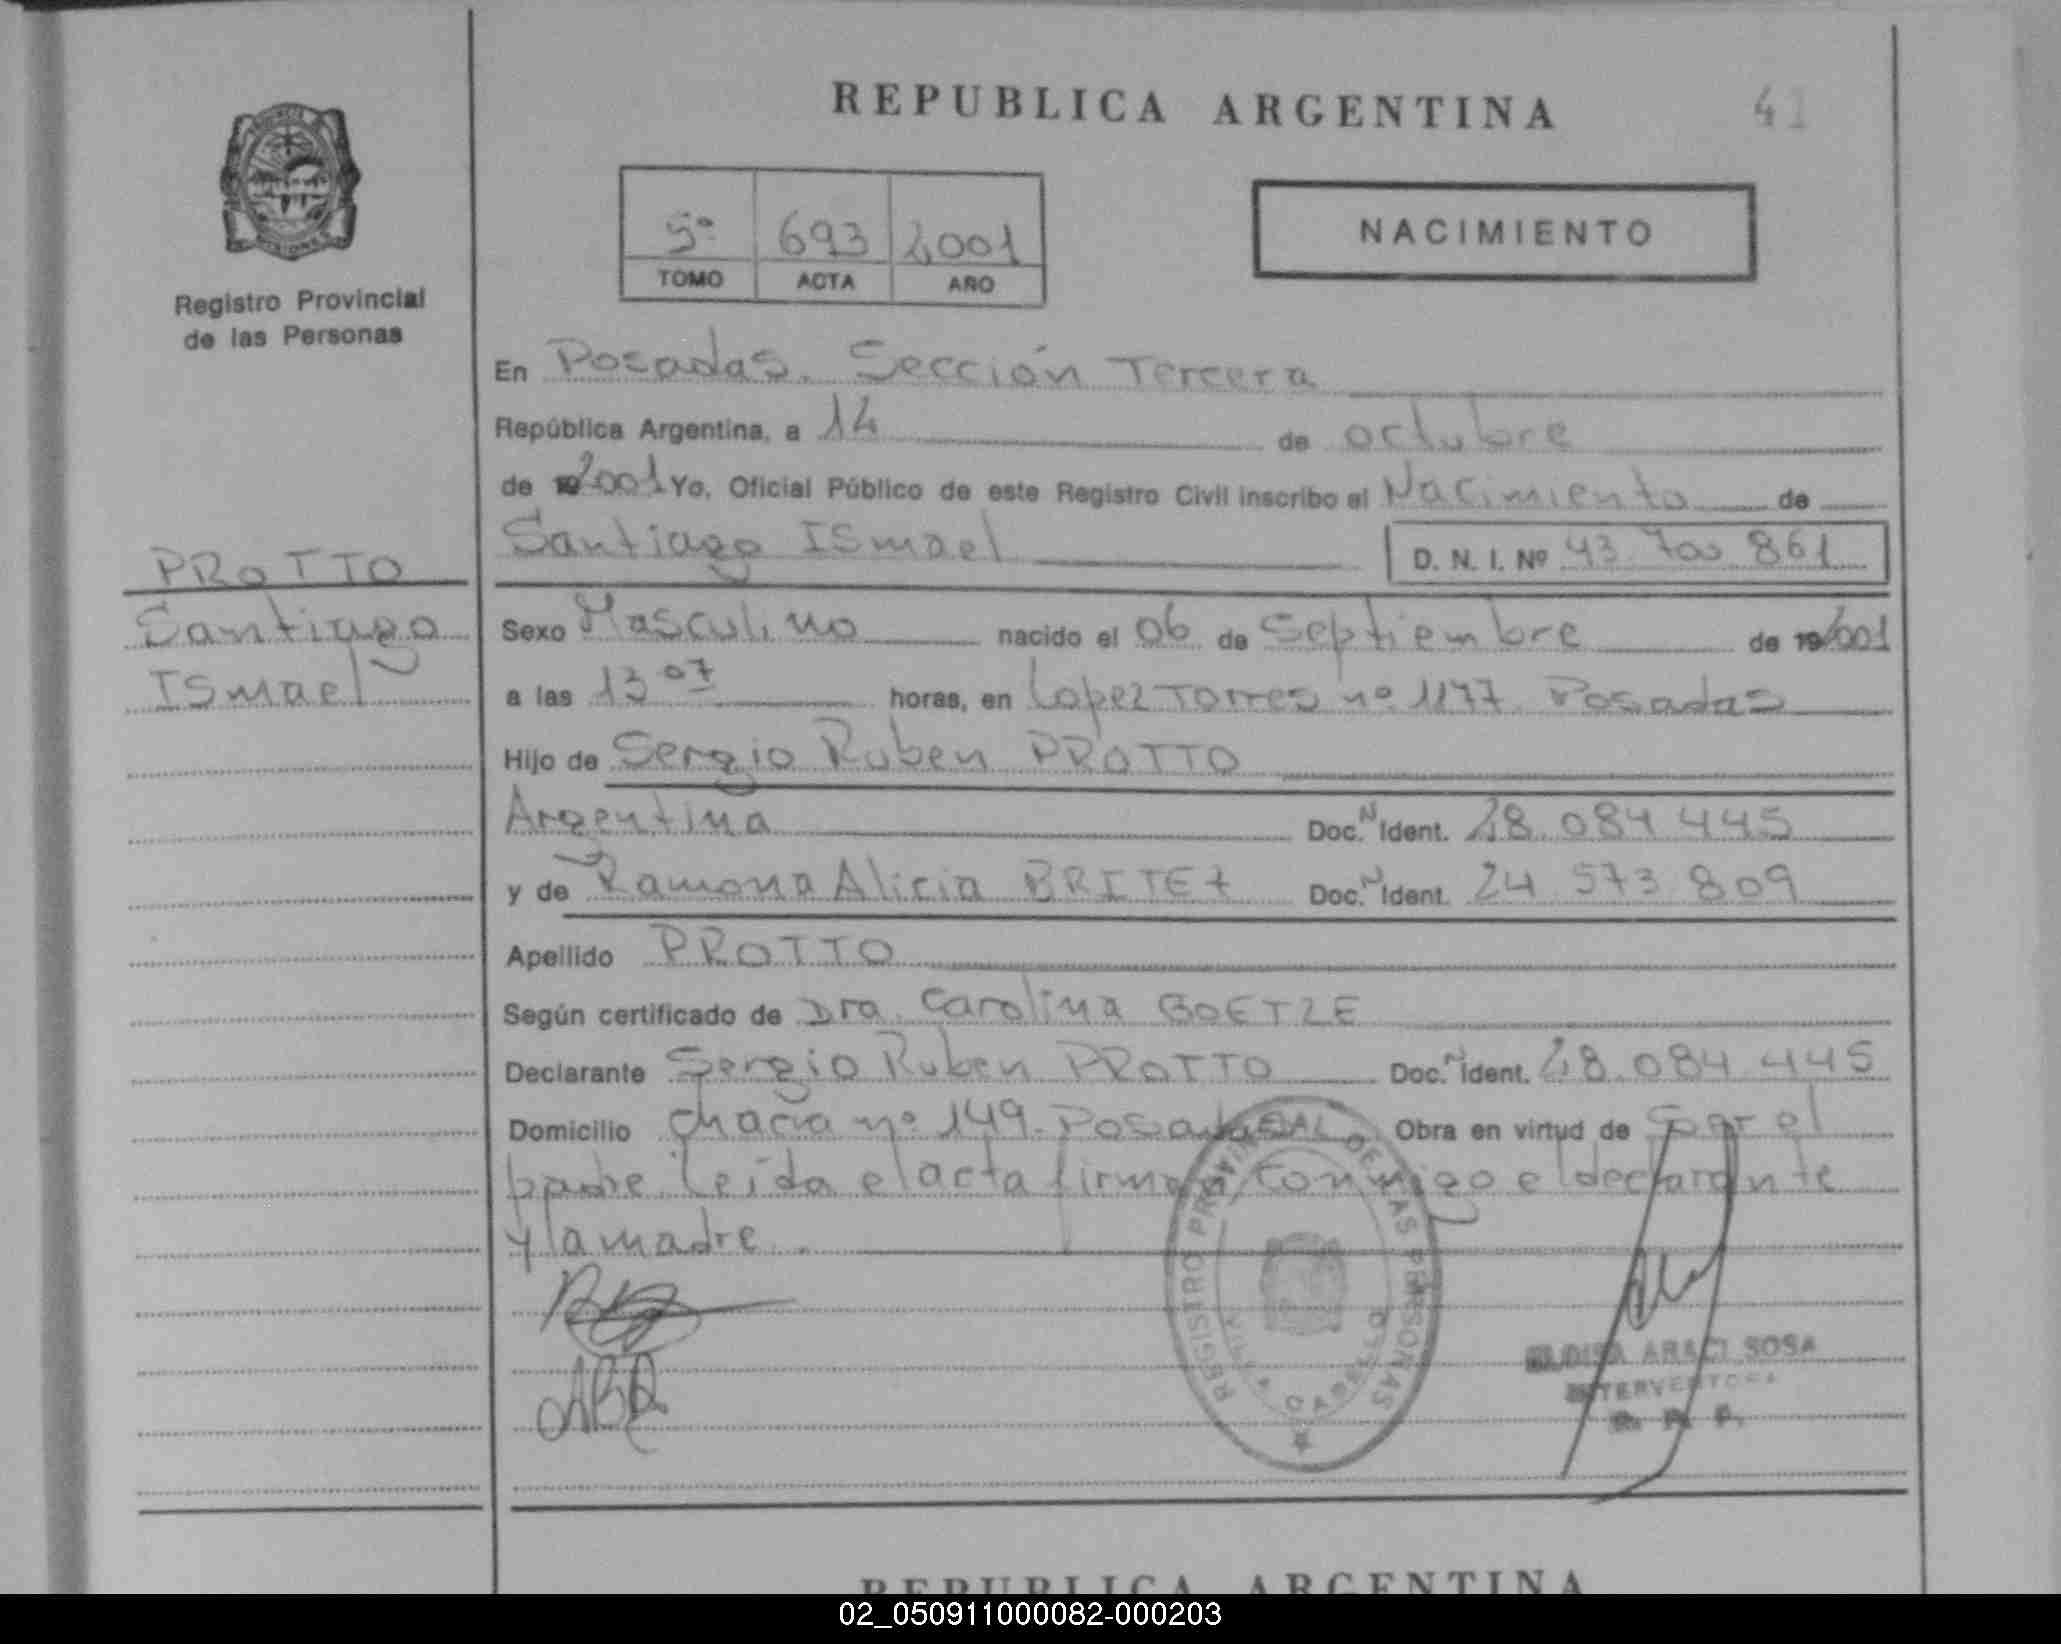 REPUBLICA ARGENTINA
41
Registro Provincial
de las Personas
5º 693 2001
TOMO ACTA AÑO
NACIMIENTO
En Posadas. Sección Tercera
República Argentina, a 14 de octubre
de 2001 Yo, Oficial Público de este Registro Civil inscribo el Nacimiento de
Santiago ISmael D. N. I. Nº 43. 700 861
PROTTO
Santiago
ISmael
Sexo Masculino nacido el 06 de Septiembre de 2001
a las 13 07 horas, en Lopez Torres nº 1177. Posadas
Hijo de Sergio Ruben PROTTO
Argentina Doc. N Ident. 28.084 445
y de Ramona Alicia BRITEZ Doc. N Ident. 24 573 809
Apellido PROTTO
Según certificado de Dra. Carolina GOETZE
Declarante Sergio Ruben PROTTO Doc. N Ident. 28.084 445
Domicilio nº 149. Posadas Obra en virtud de Ser el
padre. Leída el acta firman conmigo el declarante
y la madre.
REGISTRO PROVINCIAL DE LAS PERSONAS
VILLA CABELLO
ARACI SOSA
INTERVENTORA
R. P. P.
REPUBLICA ARGENTINA
02_050911000082-000203